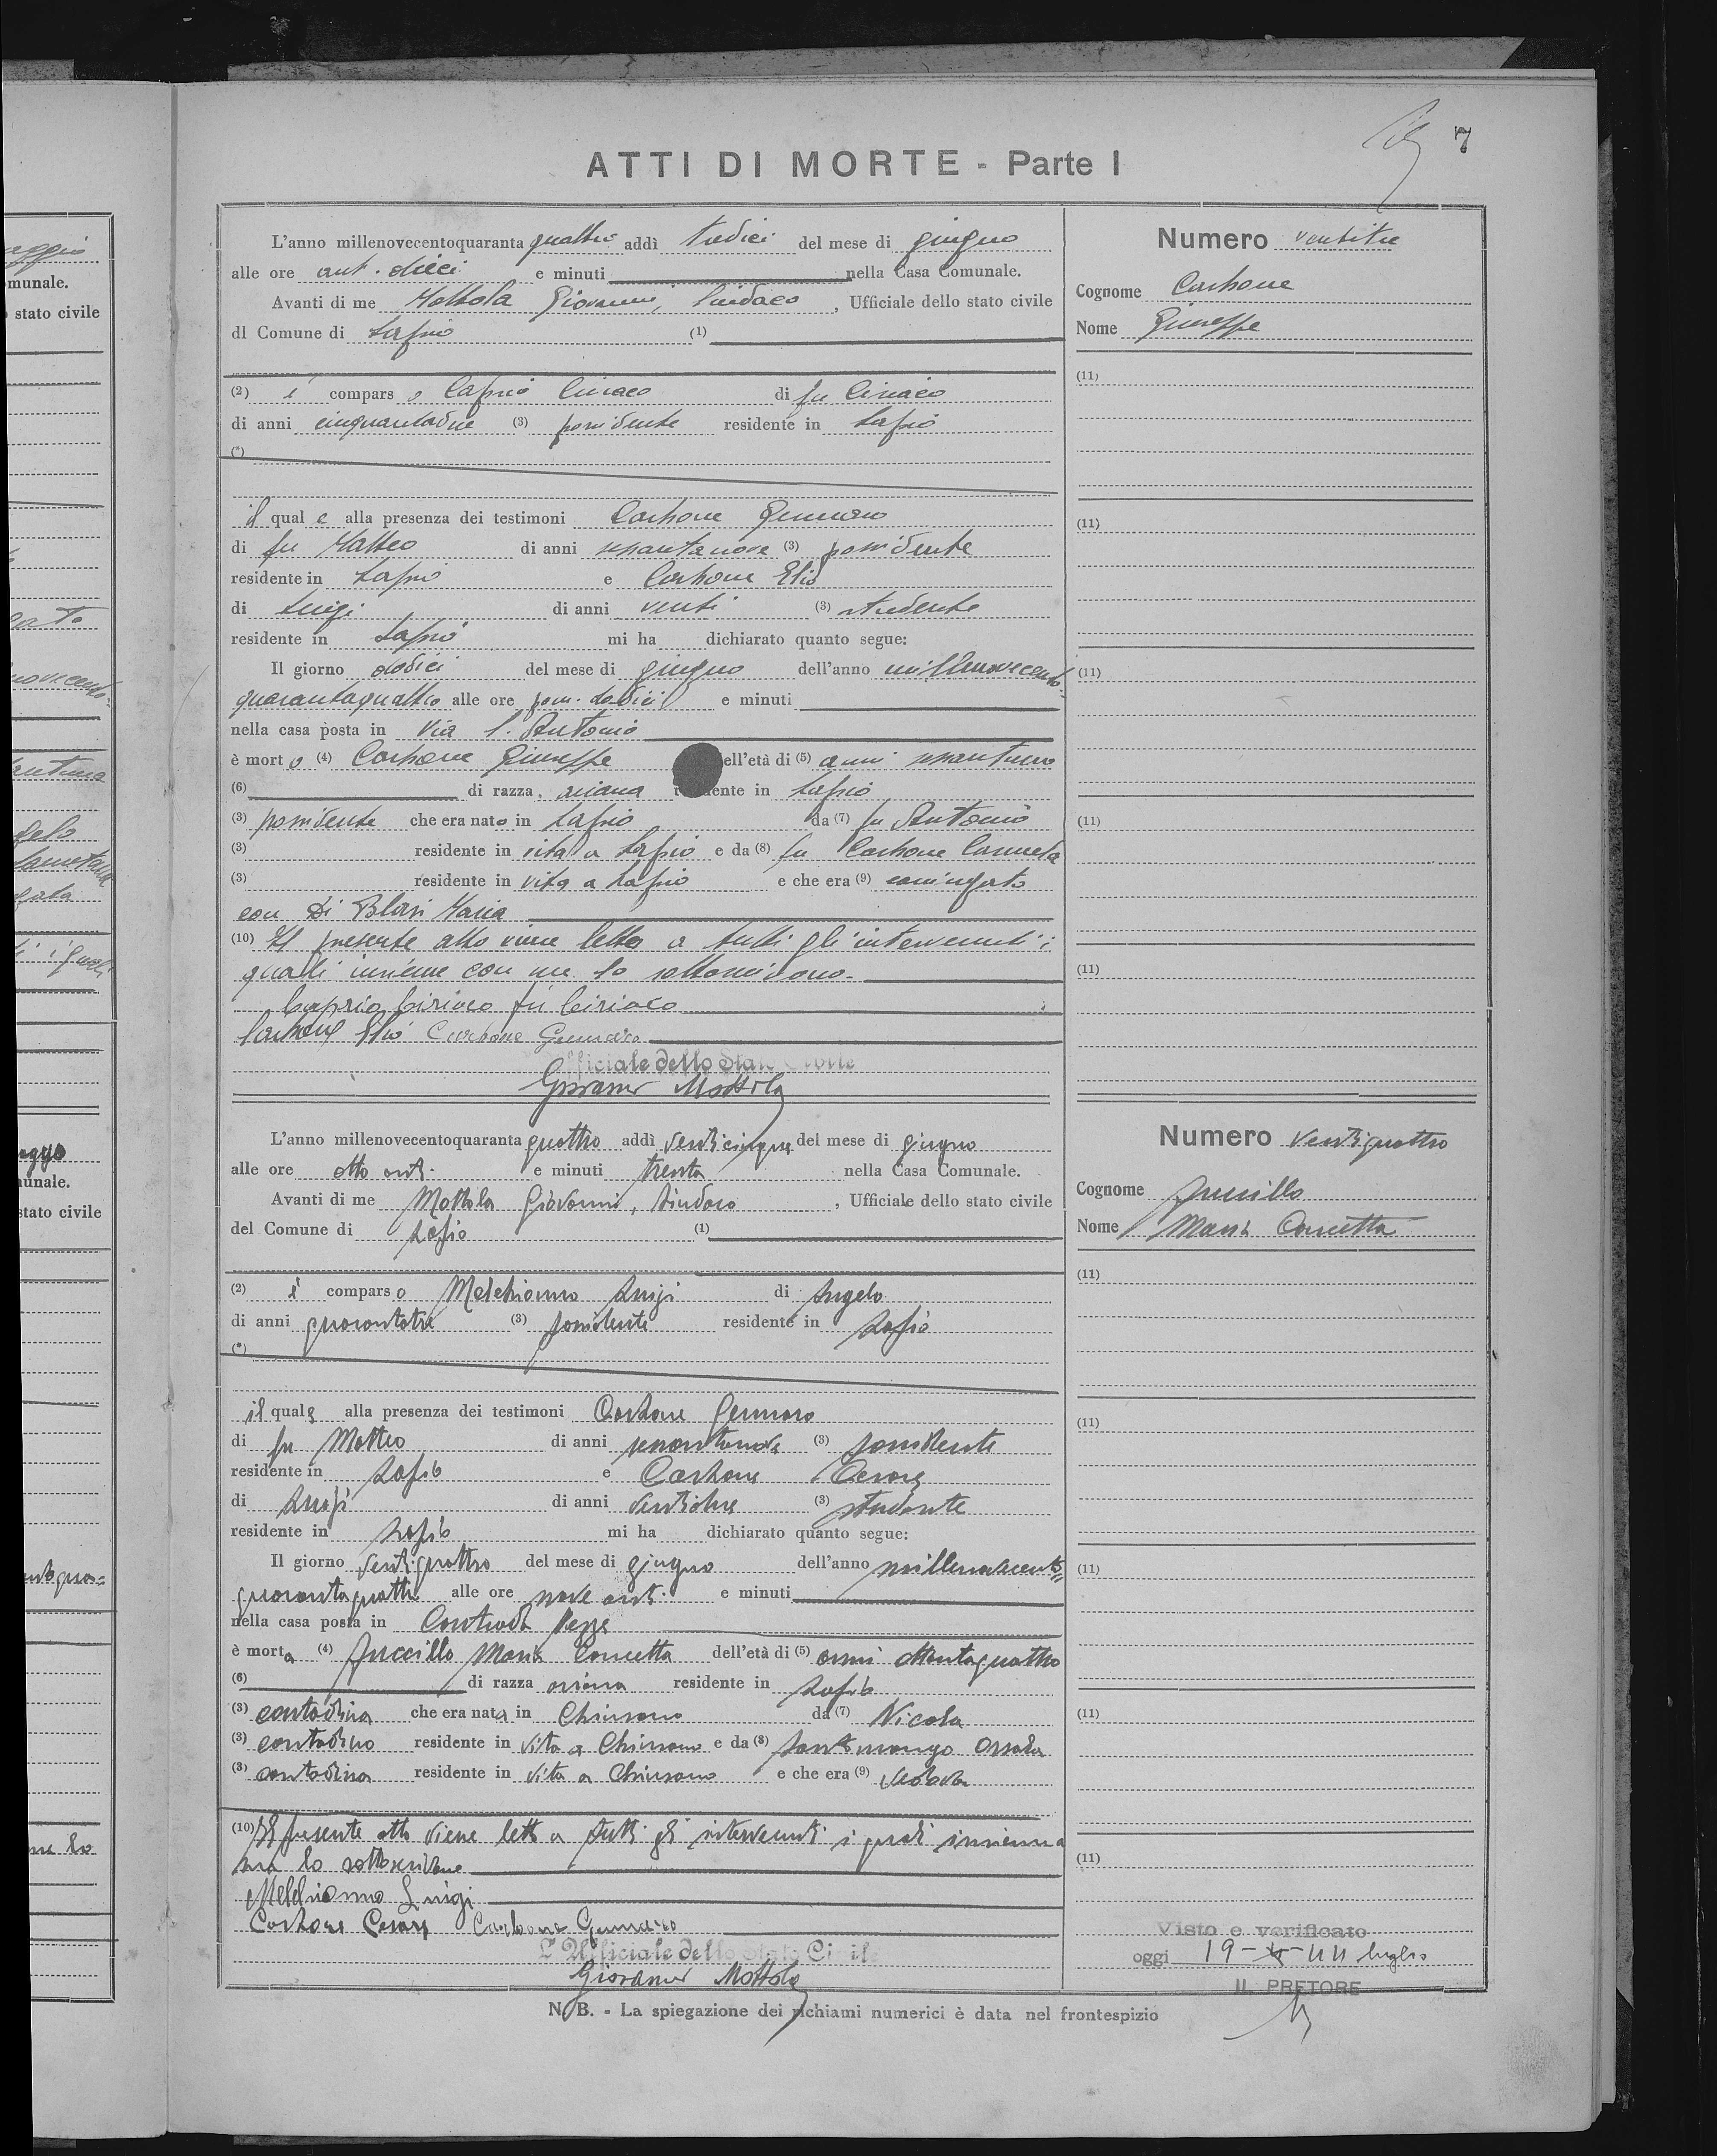 7
ATTI DI MORTE - Parte I
L'anno millenovecentoquaranta quattro addì tredici del mese di giugno
alle ore ant. dieci e minuti nella Casa Comunale.
Avanti di me Mottola Giovanni, Sindaco, Ufficiale dello stato civile
dl Comune di Lapio (1)
(2) è comparso Caprio Ciriaco di fu Ciriaco
di anni cinquantadue (3) possidente residente in Lapio
(*)
il quale alla presenza dei testimoni Carbone Gennaro
di fu Matteo di anni sessantanove (3) possidente
residente in Lapio e Carbone Elio
di Luigi di anni venti (3) studente
residente in Lapio mi ha dichiarato quanto segue:
Il giorno dodici del mese di giugno dell'anno millenovecento-
quarantaquattro alle ore pom. dodici e minuti
nella casa posta in Via S. Antonio
è morto (4) Carbone Giuseppe ell'età di (5) anni sessantuno
(6) di razza ariana residente in Lapio
(3) possidente che era nato in Lapio da (7) fu Antonio
(3) residente in vita a Lapio e da (8) fu Carbone Carmela
(3) residente in vita a Lapio e che era (9) coniugato
con Di Blasi Maria
(10) Il presente atto viene letto a tutti gli intervenuti i
quali insieme con me lo sottoscrivono.
Caprio Ciriaco fu Ciriaco
Carbone Elio Carbone Gennaro
fficiale dello Stato Civile
Giovanni Mottola
Numero ventitre
Cognome Carbone
Nome Giuseppe
(11)
(11)
(11)
(11)
(11)
L'anno millenovecentoquaranta quattro addì venticinque del mese di giugno
alle ore otto ant. e minuti trenta nella Casa Comunale.
Avanti di me Mottola Giovanni, Sindaco, Ufficiale dello stato civile
del Comune di Lapio (1)
(2) è comparso Melchionno Luigi di Angelo
di anni quarantatre (3) possidente residente in Lapio
(*)
il quale alla presenza dei testimoni Carbone Gennaro
di fu Matteo di anni sessantanove (3) possidente
residente in Lapio e Carbone Cesare
di Luigi di anni ventidue (3) studente
residente in Lapio mi ha dichiarato quanto segue:
Il giorno ventiquattro del mese di giugno dell'anno millenovecento=
quarantaquattro alle ore nove ant. e minuti
nella casa posta in Contrada Pezze
è morta (4) Juccillo Maria Concetta dell'età di (5) anni ottantaquattro
(6) di razza ariana residente in Lapio
(3) contadina che era nata in Chiusano da (7) Nicola
(3) contadino residente in vita a Chiusano e da (8) Santomango
(3) contadina residente in vita a Chiusano e che era (9) vedova
(10) Il presente atto viene letto a tutti gli intervenuti i quali insieme a
me lo sottoscrivono
Melchionno Luigi
Carbone Cesare Carbone Gennaro
L'Ufficiale dello Stato Civile
Giovanni Mottola
Numero ventiquattro
Cognome Juccillo
Nome Maria Concetta
(11)
(11)
(11)
(11)
(11)
Visto e verificato
oggi 19 - 44 luglio
IL PRETORE
N. B. - La spiegazione dei richiami numerici è data nel frontespizio